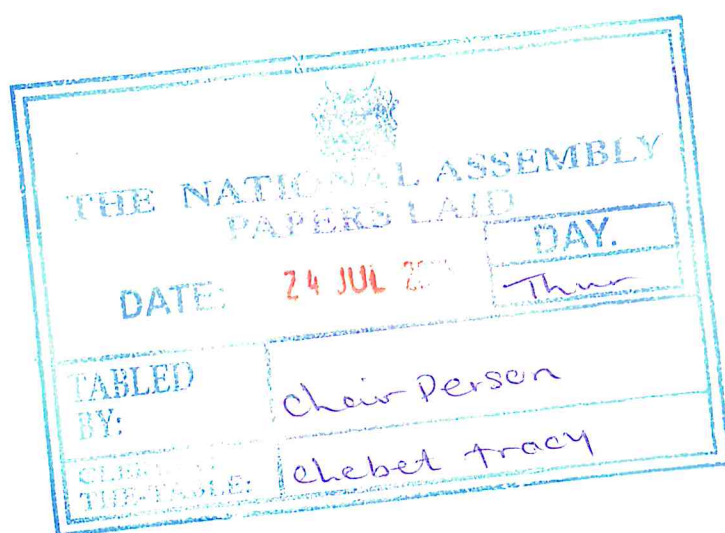 THE NATIONAL ASSEMBLY
PAPERS LAID
DATE: 24 JUL
DAY.
Thur
TABLED BY:
Chair Person
CLERK AT THE-TABLE:
Chebet Tracy